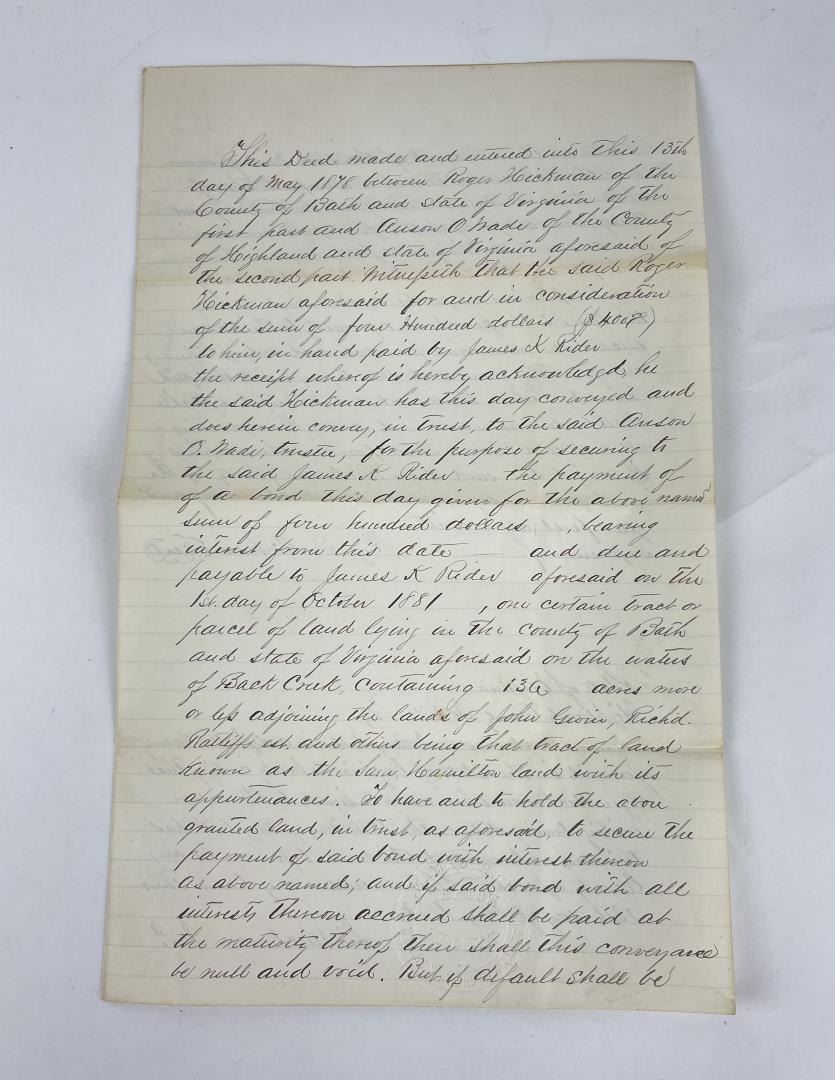 This Deed made and entered into this 13th
day of May 1878 between Roger Hickman of the
County of Bath and state of Virginia of the
first part and Anson O. Wade of the County
of Highland and state of Virginia aforesaid of
the second part. Witnesseth that the said Roger
Hickman aforesaid for and in consideration
of the sum of four Hundred dollars ($400)
to him, in hand paid by James K Rider
the receipt whereof is hereby acknowledgd, he
the said Hickman has this day conveyed and
does herein convey, in trust, to the said Anson
O. Wade, trustee, for the purpose of securing to
the said James K Rider the payment of
of a bond this day given for the above named
sum of four hundred dollars, bearing
interest from this date — and due and
payable to James K Rider aforesaid on the
1st. day of October 1881, one certain tract or
parcel of land lying in the county of Bath
and state of Virginia aforesaid on the waters
of Back Creek, containing acres more
or less adjoining the lands of John Gwin, Richd.
Ratliffs est. and others being that tract of land
known as the Sam. Hamilton land with its
appurtenances. To have and to hold the above
granted land, in trust, as aforesaid, to secure the
payment of said bond with interest thereon
as above named; and if said bond with all
interest, thereon accrued shall be paid at
the maturity thereof then shall this conveyance
be null and void. But if default shall be